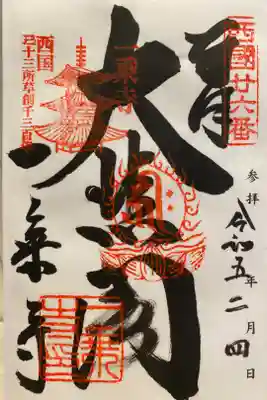 西國廿六番
奉拝
参拝
令和五年二月四日
大悲閣
一乗寺
西国
三十三所草創千三百年
一乗寺